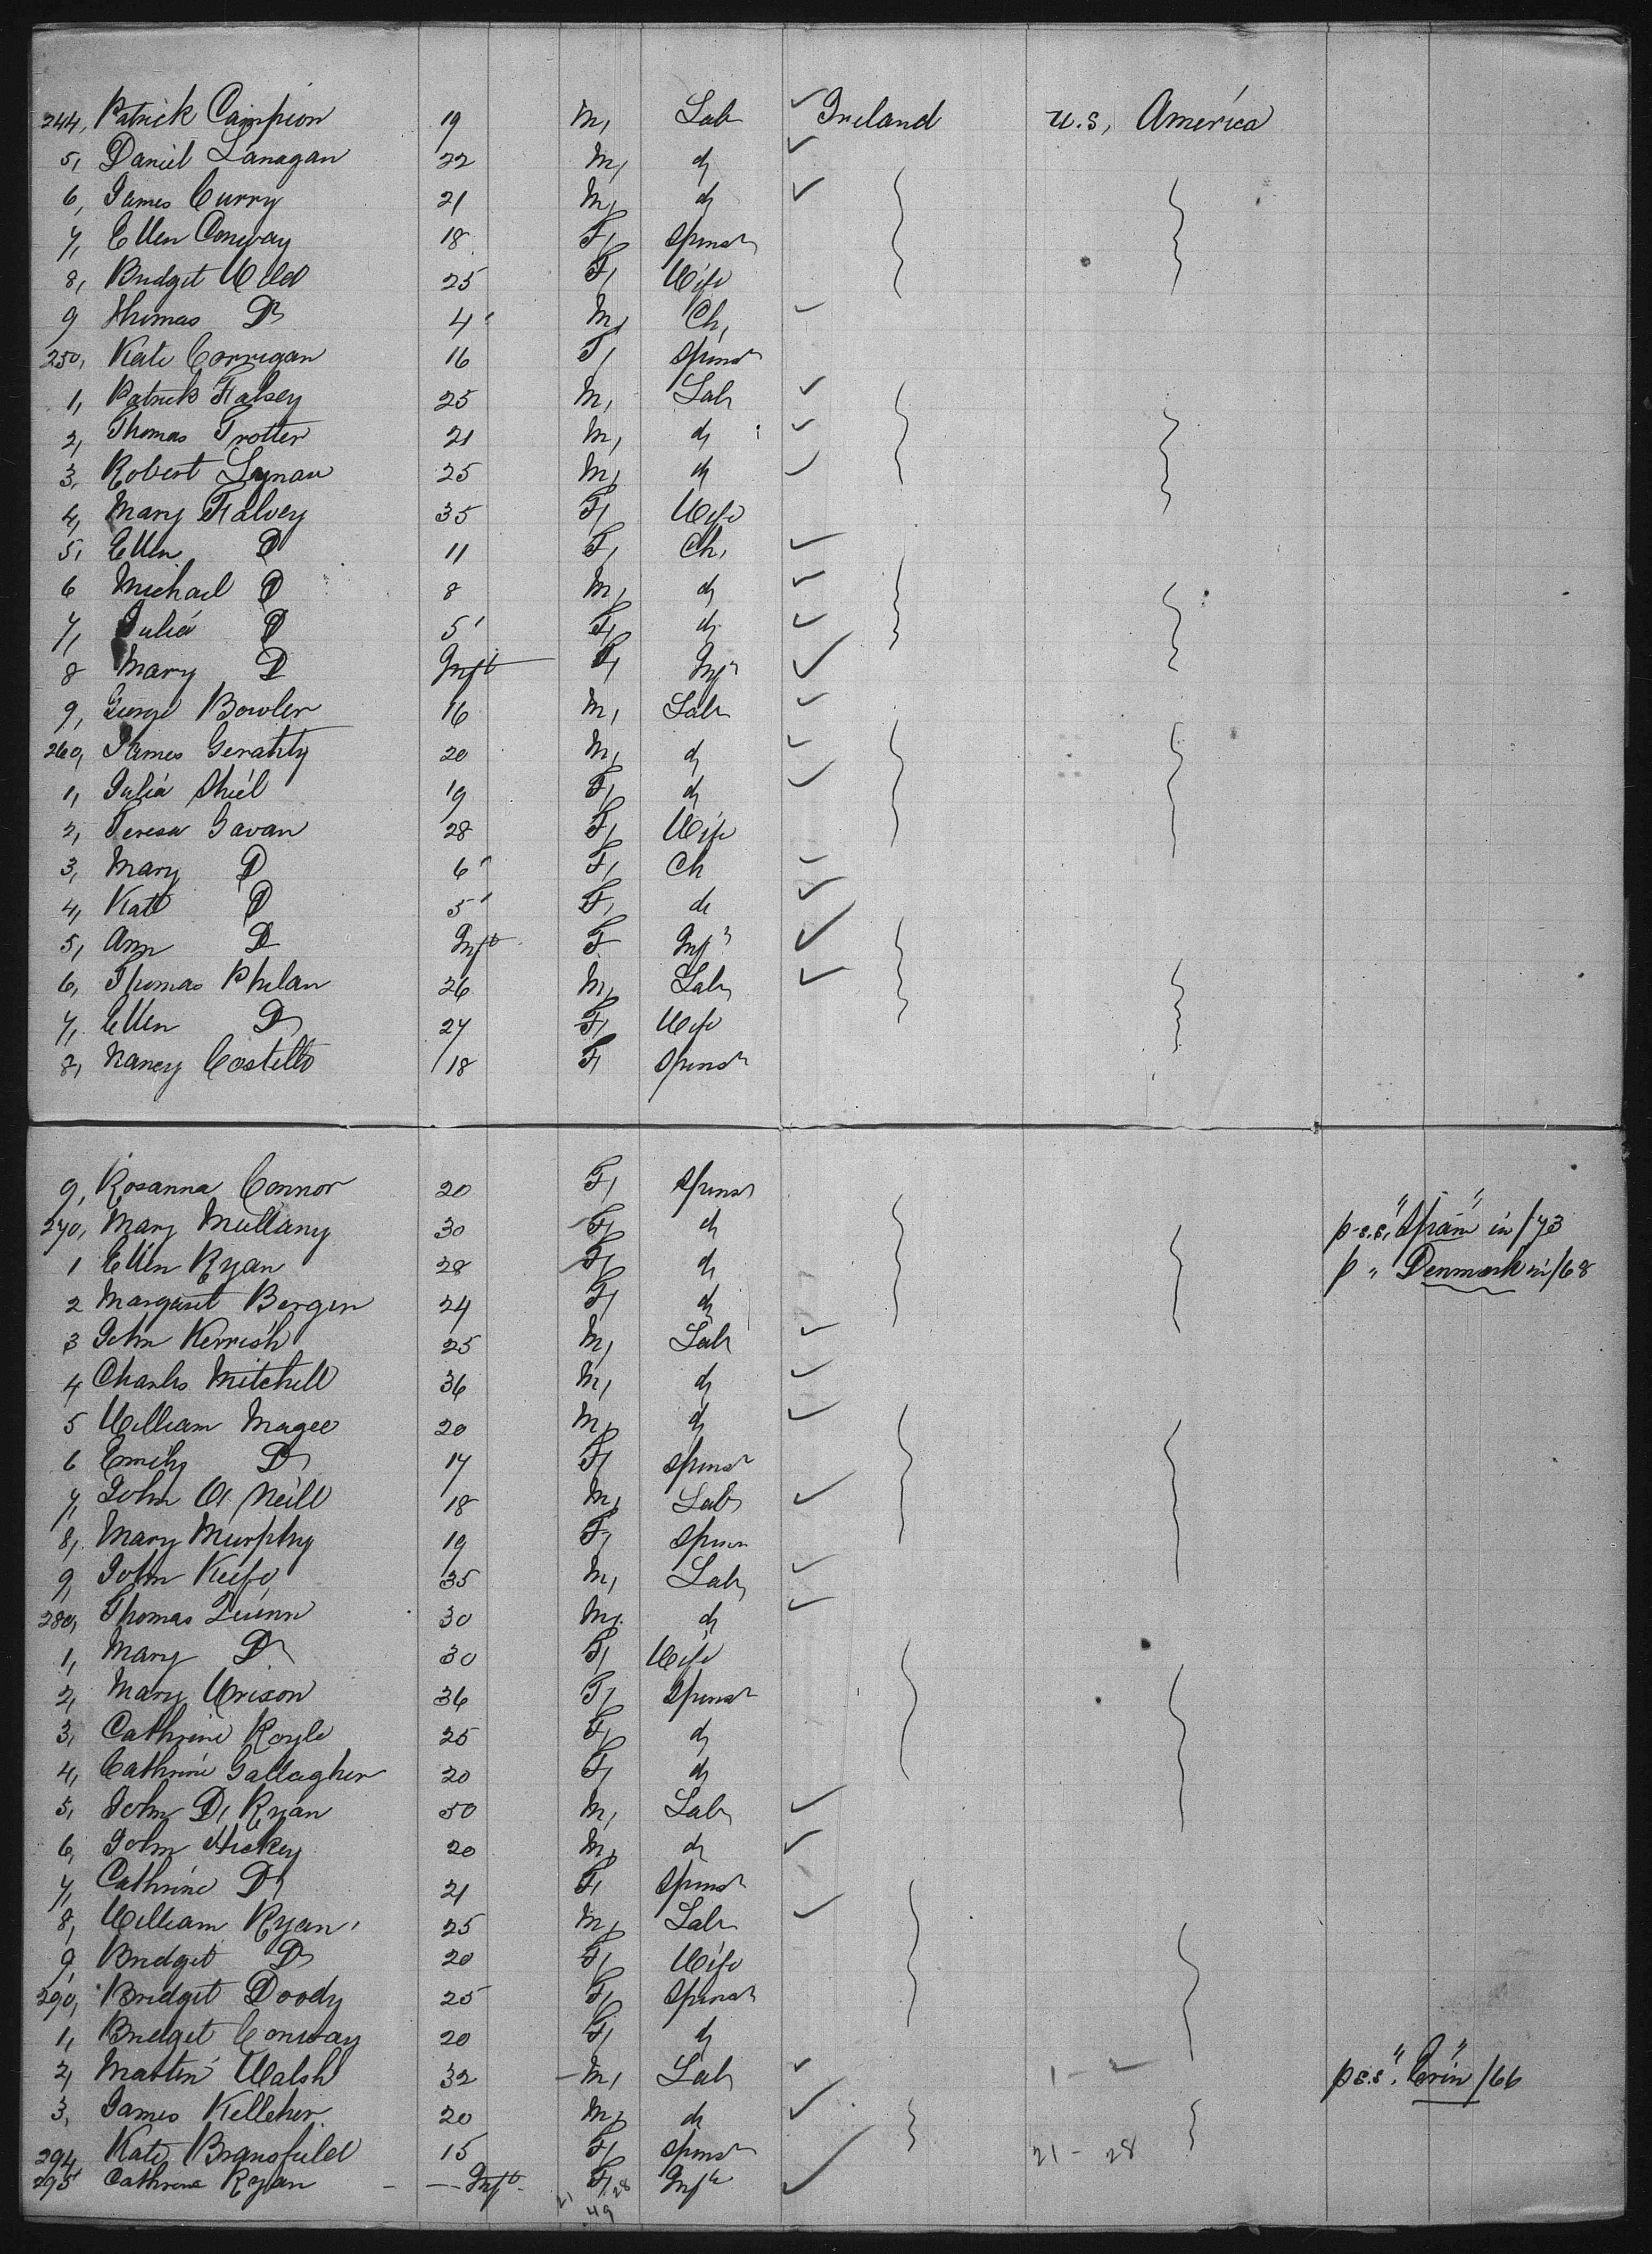 244, Patrick Campion 19 M, Lab Ireland U.S, America
5, Daniel Lanagan 22 M, do
6, James Curry 21 M, do
7, Ellen Conway 18 F, Spinstr
8, Bridget Weld 25 F, Wife
9 Thomas Do 4 M, Ch,
250, Kate Corrigan 16 F, Spinstr
1, Patrick Falsey 25 M, Lab
2, Thomas Trotter 21 M, do
3, Robert Lynau 25 M, do
4, Mary Falvey 35 F, Wife
5, Ellen Do 11 F, Ch,
6 Michael Do 8 M, do
7, Julia Do 5 F, do
8 Mary Do Inft F, Inft
9, George Bowler 16 M, Lab
260, James Gerahty 20 M, do
1, Julia Shiel 19 F, do
2, Teresa Gavan 28 F, Wife
3, Mary Do 6 F, Ch
4, Kate Do 5 F, do
5, Ann Do Inft F Inft
6, Thomas Phelan 26 M, Lab
7, Ellen Do 27 F, Wife
8, Nancy Costello 18 F, Spinstr
9, Rosanna Connor 20 F, Spinstr
270, Mary Mullany 30 F, do p. s.s, "Spain" in /73
1 Ellen Ryan 28 F, do p " Denmark in /68
2 Margaret Bergin 24 F, do
3 John Kerrish 25 M, Lab
4 Charles Mitchell 36 M, do
5 William Magee 20 M, do
6 Emily Do 17 F, Spinstr
7, John O'Neill 18 M, Lab
8, Mary Murphy 19 F, Spin
9, John Keefe 35 M, Lab
280, Thomas Quinn 30 M, do
1, Mary Do 30 F, Wife
2, Mary 36 F, Spinstr
3, Cathrine Royle 25 F, do
4, Cathrine Gallagher 20 F, do
5, John D, Ryan 50 M, Lab
6, John Hickey 20 M, do
7, Cathrine Do 21 F, Spinstr
8, William Ryan 25 M, Lab
9, Bridget Do 20 F, Wife
290, Bridget Doody 25 F, Spinstr
1, Bridget Conway 20 F, do
2, Martin Walsh 32 M, Lab p s.s. "Erin" /66
3, James Kelleher 20 M, do
294 Kate Bransfield 15 F, Spinstr 21 - 28
295 Cathrine Ryan Inft F, Inft
21 28
49